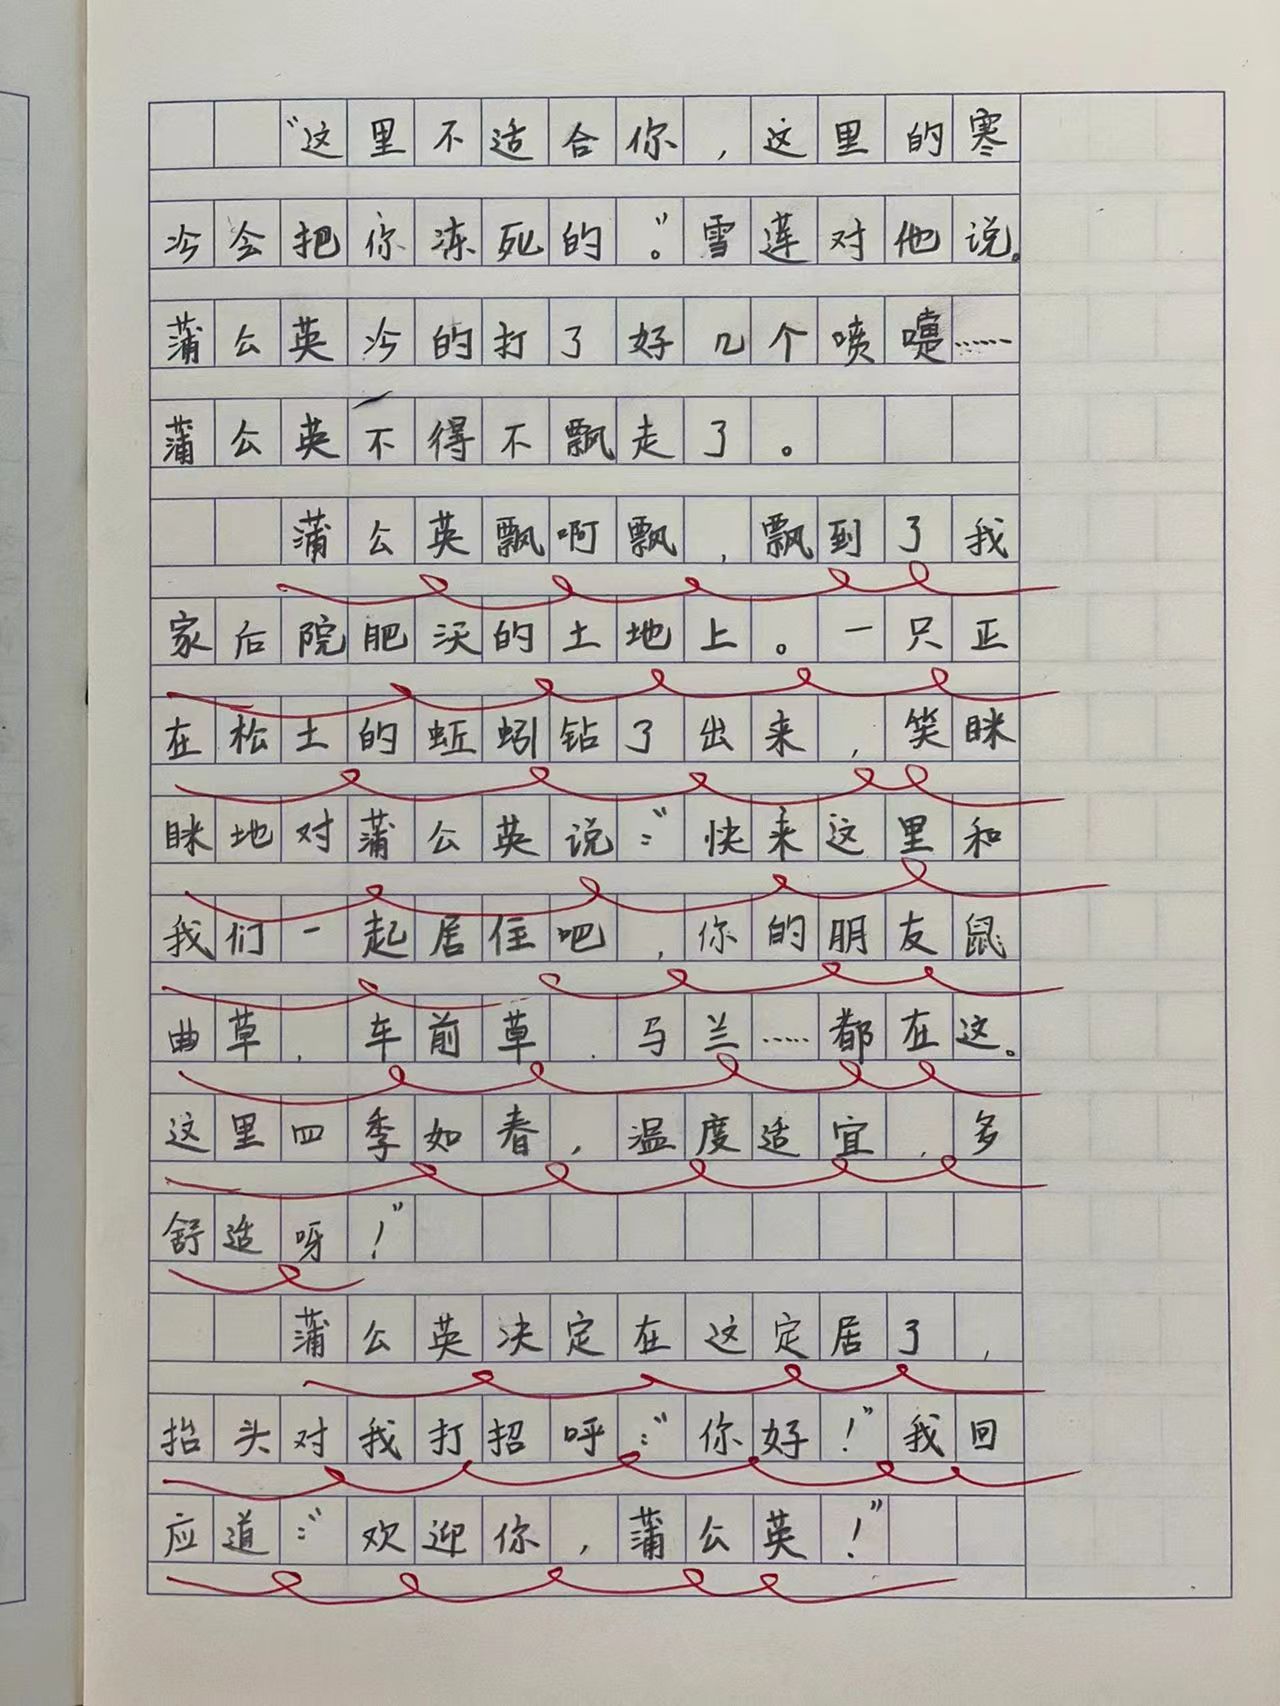 “这里不适合你，这里的寒
冷会把你冻死的。”雪莲对他说。
蒲公英冷的打了好几个喷嚏……
蒲公英不得不飘走了。
蒲公英飘啊飘，飘到了我
家后院肥沃的土地上。一只正
在松土的蚯蚓钻了出来，笑眯
眯地对蒲公英说：“快来这里和
我们一起居住吧，你的朋友鼠
曲草，车前草，马兰……都在这。
这里四季如春，温度适宜，多
舒适呀！”
蒲公英决定在这定居了，
抬头对我打招呼：“你好！”我回
应道：“欢迎你，蒲公英！”